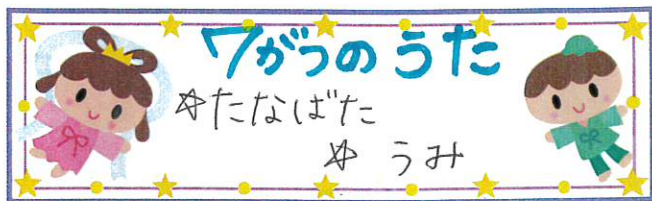 7がつのうた
☆たなばた
☆うみ